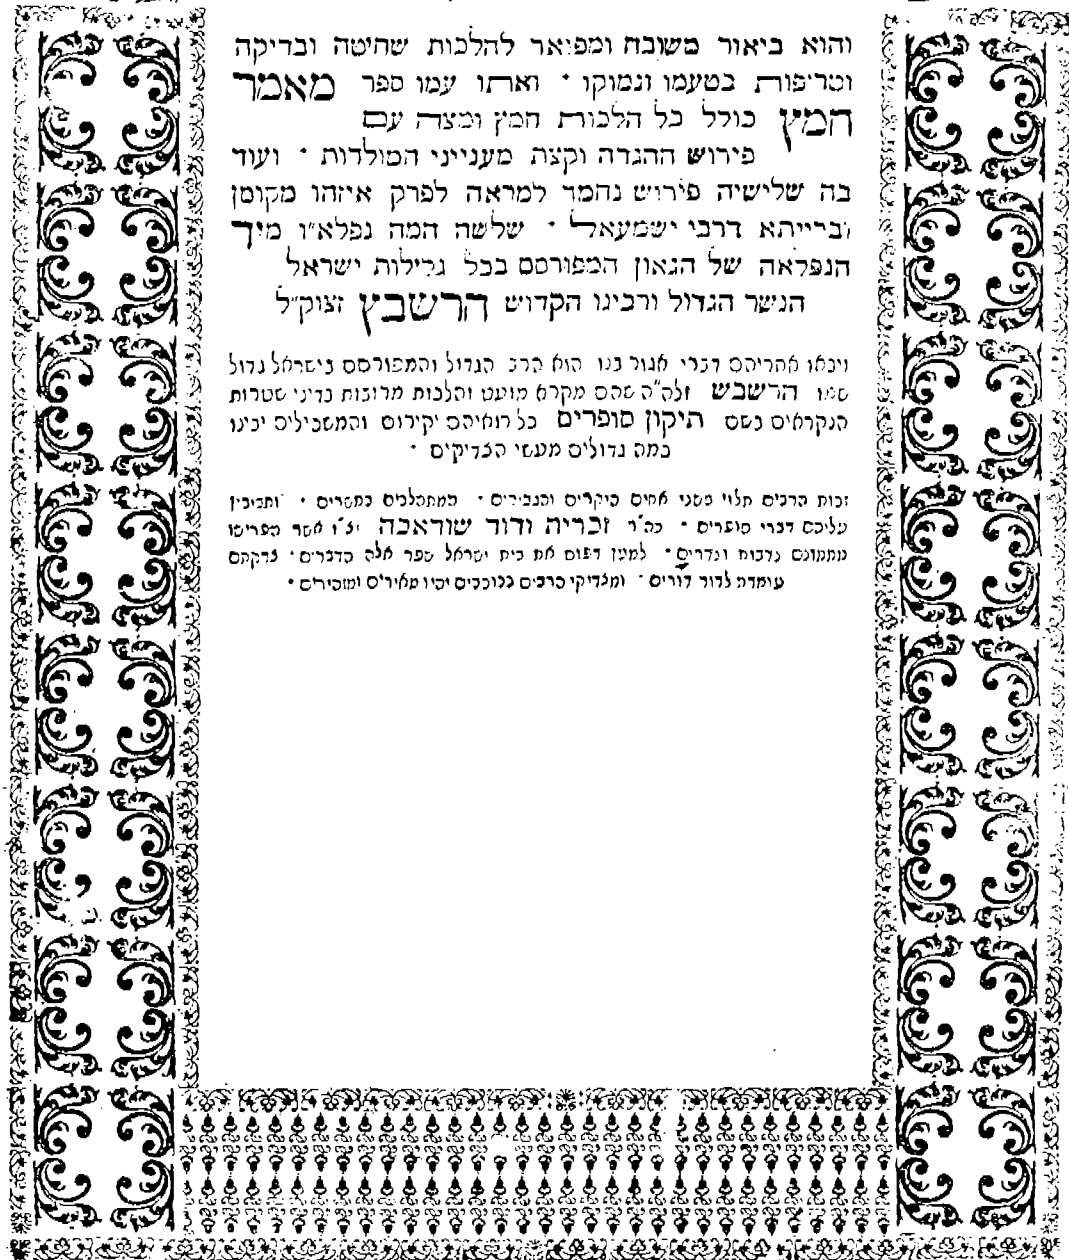 והוא ביאור משובח ומפואר להלכות שחיטה ובדיקה
וטריפות בטעמו ונמוקו · ואתו עמו ספר מאמר
חמץ כולל כל הלכות חמץ ומצה עם
פירוש ההגדה וקצת מענייני המולדות · ועוד
בה שלישיה פירוש נחמד למראה לפרק איזהו מקומן
וברייתא דרבי ישמעאל · שלשה המה נפלא״ו מיד
הנפלאה של הגאון המפורסם בכל גלילות ישראל
הנשר הגדול ורבינו הקדוש הרשבץ זצוק״ל
ויבאו אחריהם דברי אגור בנו הוא הרב הגדול והמפורסם בישראל גדול
שמו הרשבש זלה״ה שהם מקרא מועט והלכות מרובות בדיני שטרות
הנקראים בשם תיקון סופרים כל רואיהם יקירום והמשכילים יבינו
כמה גדולים מעשי הצדיקים ·
זכות הרבים תלוי בשני אחים היקרים והגבירים · המתהלכים במשרים · וחביבין
עליהם דברי סופרים · כה״ר זכרית ודוד שודאכה יצ״ו אשר הפרישו
מממונם נדבות ונדרים · למען דפוס את בית ישראל ספר אלה הדברים · צדקתם
עומדת לדור דורים · ומצדיקי הרבים ככוכבים יהיו מאירים ומזהירים ·